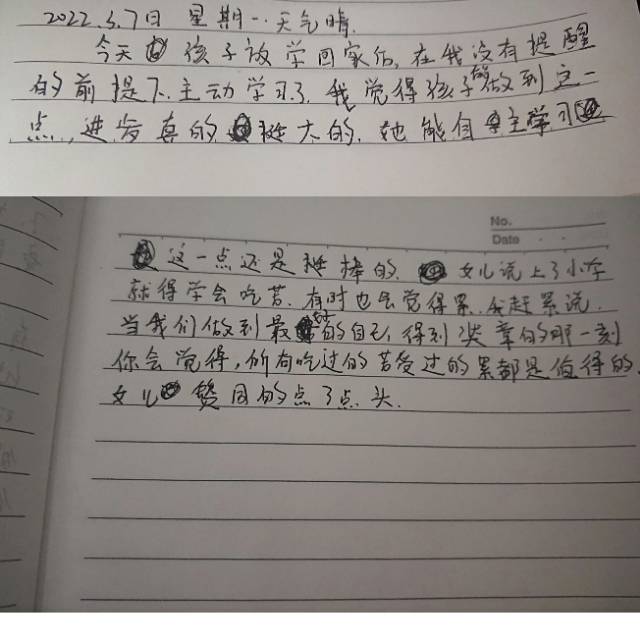 2022.3.7日 星期一.天气晴.
今天 孩子放学回家后,在我没有提醒
的前提下.主动学习了.我觉得孩子能做到这一
点,进步真的 挺大的.她能自主学习
No.
Date
这一点还是挺棒的. 女儿说上了小学
就得学会吃苦.有时也会觉得累.我赶紧说.
当我们做到最好的自己,得到奖章的那一刻
你会觉得,所有吃过的苦受过的累都是值得的.
女儿 赞同的点了点头.